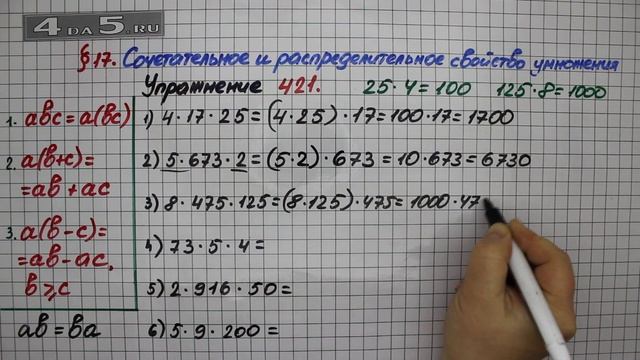 4DA5.RU
§17. Сочетательное и распределительное свойство умножения
Упражнение 421. 25·4=100 125·8=1000
1. abc=a(bc)
2. a(b+c)=
=ab+ac
3. a(b-c)=
=ab-ac,
b⩾c
ab=ba
1) 4·17·25=(4·25)·17=100·17=1700
2) 5·673·2=(5·2)·673=10·673=6730
3) 8·475·125=(8·125)·475=1000·47
4) 73·5·4=
5) 2·916·50=
6) 5·9·200=